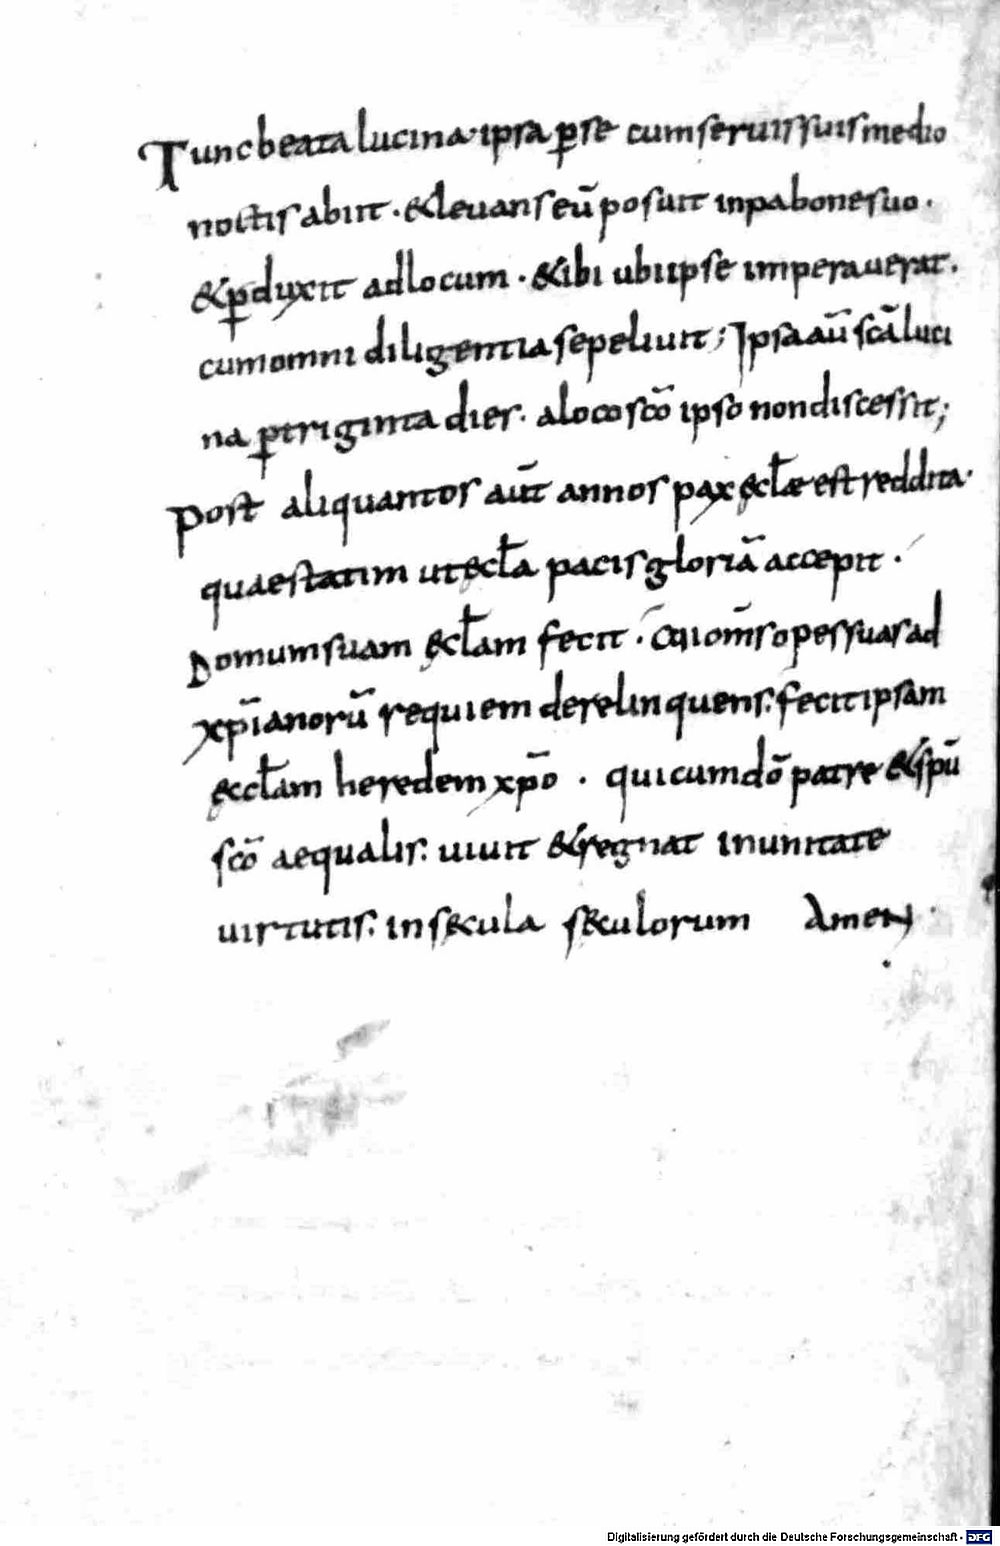 Tunc beata lucina · ipsa ꝑse cum seruis suis medio
noctis abiit · & leuans eū posuit inpabone suo ·
& ꝑduxit ad locum · & ibi ubi ipse imperauerat .
cum omni diligentia sepeliuit ; Ipsa aū scā luci
na ꝑ triginta dies · a loco scō ipso non discessit ;
post aliquantos aūt annos pax ęcłae est reddita ·
quae statim ut ęcła pacis gloriā accepit ·
Domum suam ęcłam fecit · Cui om̄s opes suas ad
xp̄ianorū requiem derelinquens : fecit ipsam
ęccłam heredem xp̄o · qui cum dō patre & sp̄u
scō aequalis : uiuit & regnat in unitate
uirtutis : in secula seculorum Amen ·
Digitalisierung gefördert durch die Deutsche Forschungsgemeinschaft - DFG